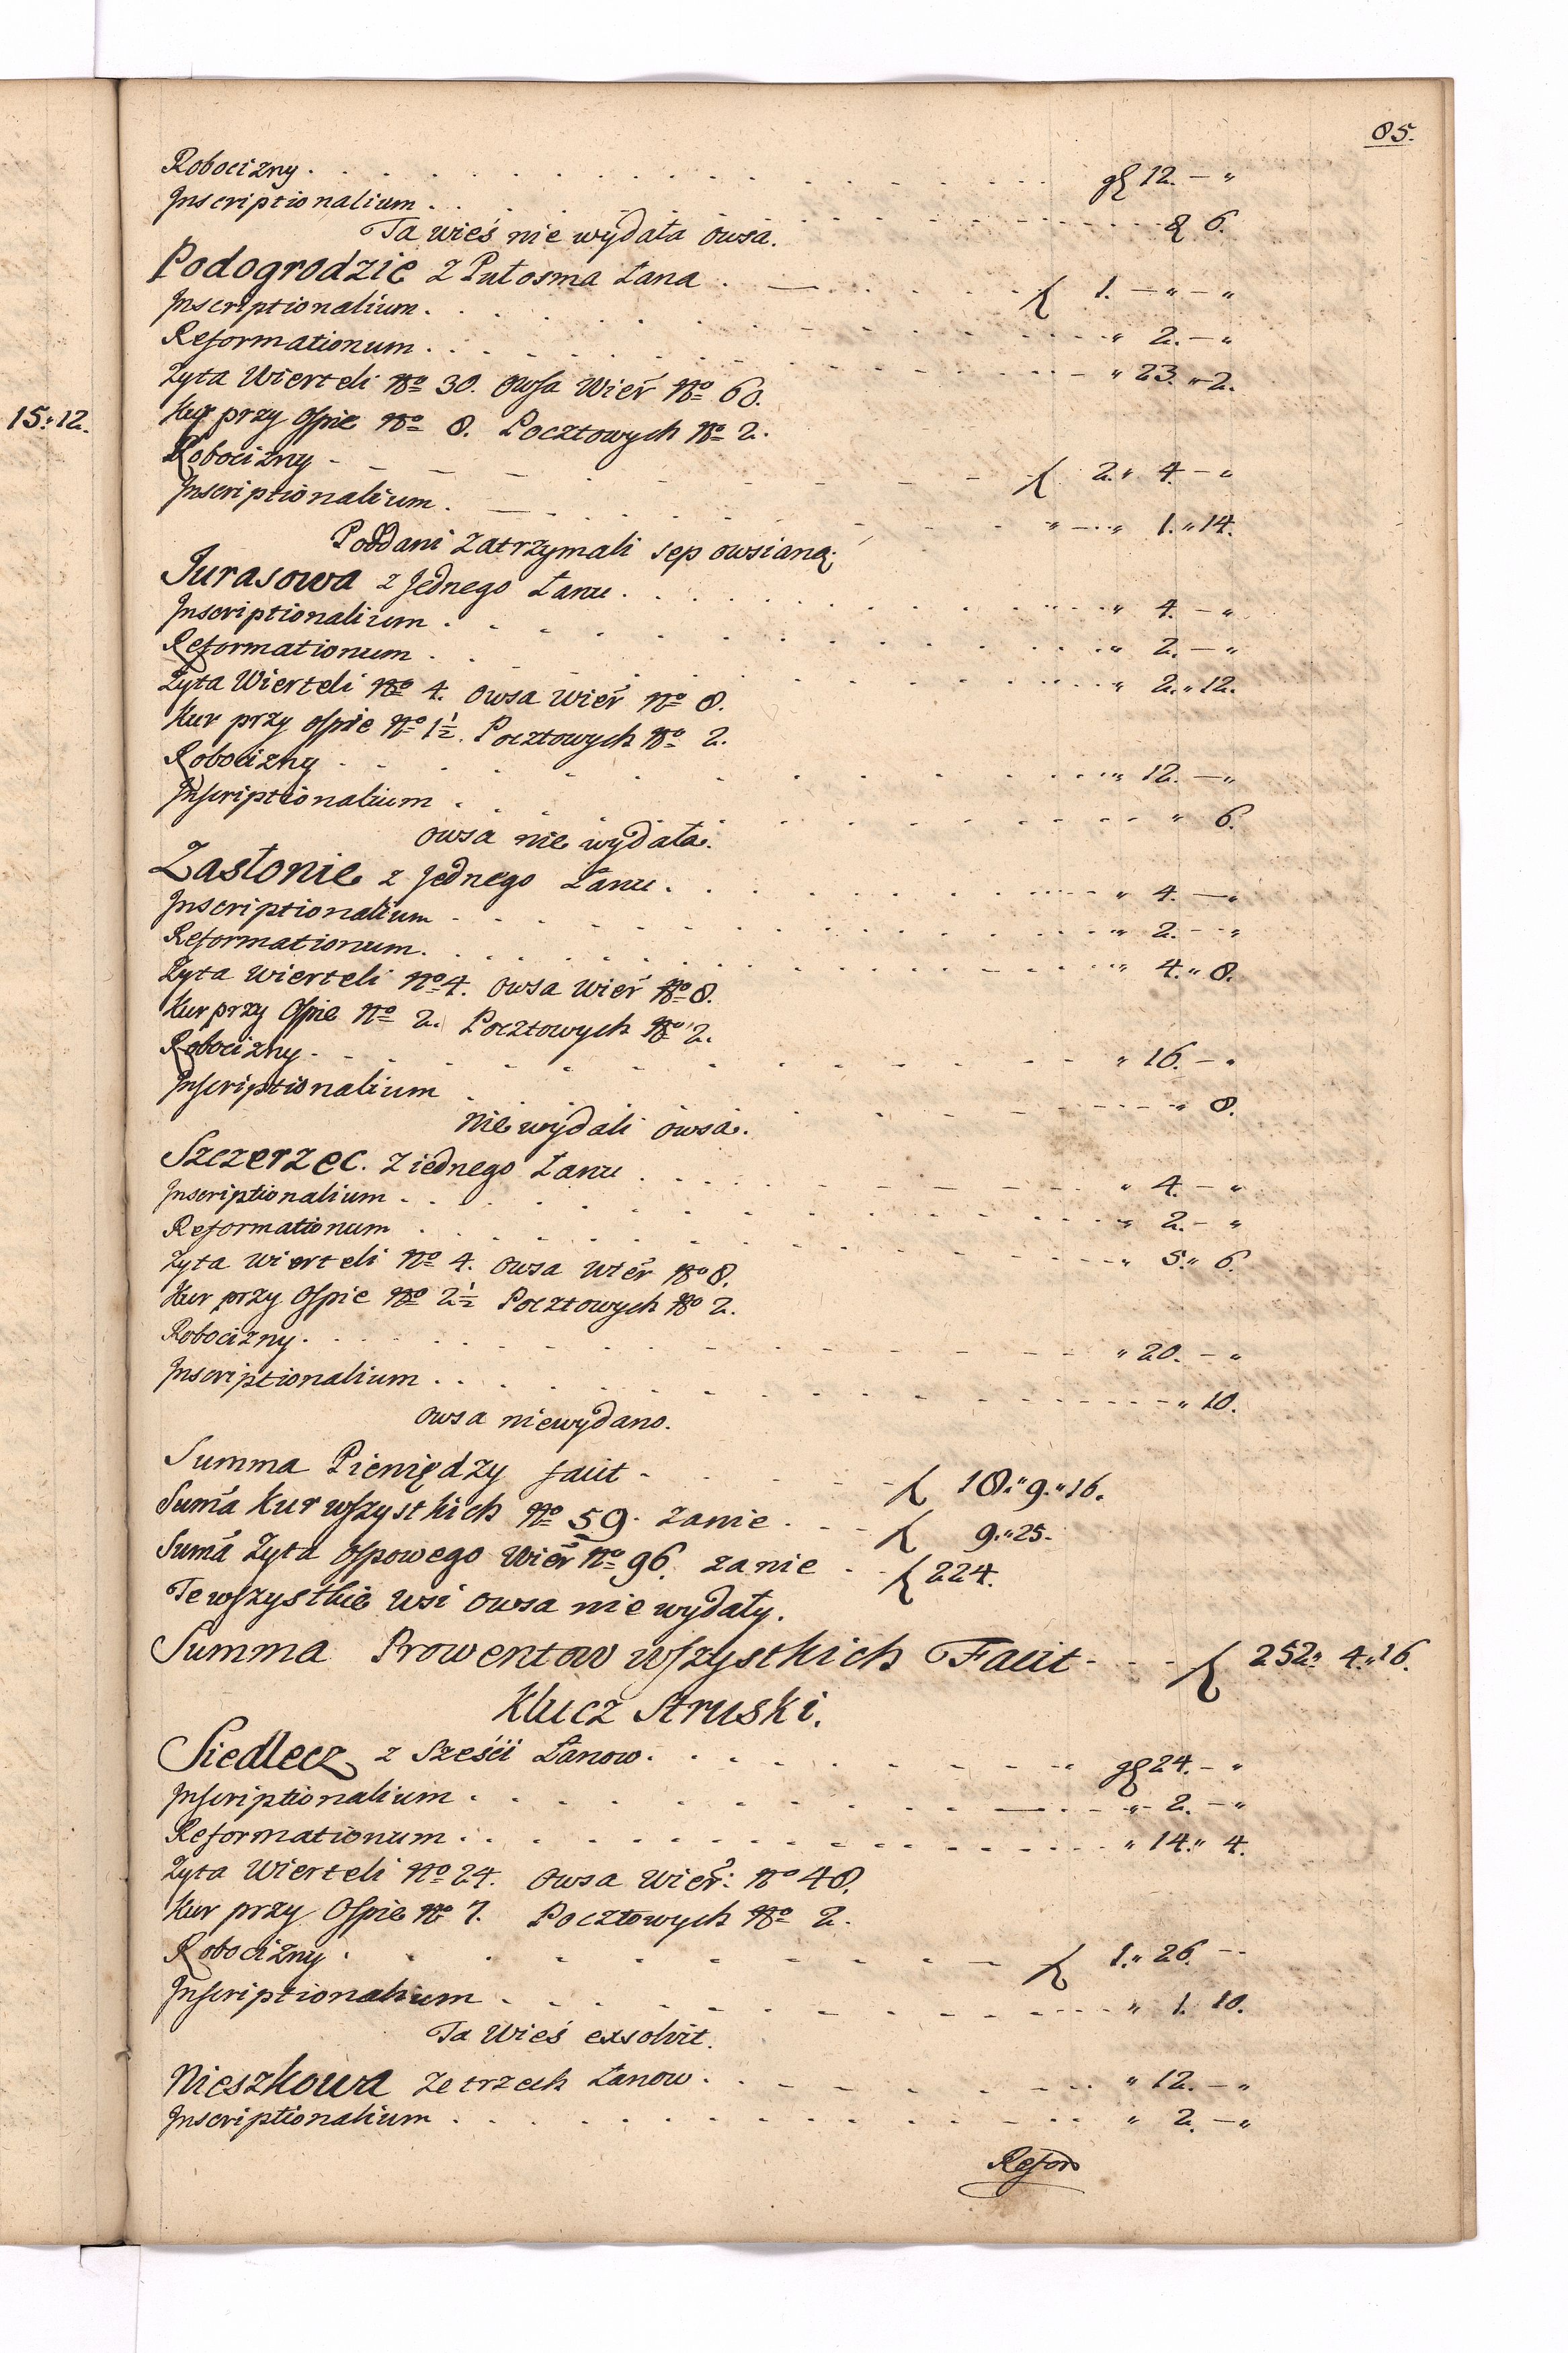 85.
15„12.
Robocizny . . . . . gl 12. — „
Inscriptionalium . . . . . gl 6.
Ta wieś nie wydała owsa.
Podogrodzie z Pułosma Łana . — . . . . fl 1. — „ — „
Inscriptionalium . . . . . „ 2. — „
Reformationum . . . . . „ 23. „ 2.
Zyta Wierteli No 30. owsa Wier No 60.
Kur przy Ospie No 8. Pocztowych No 2.
Robocizny - - - - - fl 2. „ 4. — „
Inscriptionalium . — . . . . „ — „ 1. „ 14.
Poddani zatrzymali sep owsianą.
Jurasowa z Jednego Łanu . . . . . „ 4. — „
Inscriptionalium . . . . . „ 2. — „
Reformationum . . . . . „ 2. „ 12.
Zyta Wierteli No 4. owsa Wier No 8.
Kur przy ospie No 1½. Pocztowych No 2.
Robocizny . . . . . „ 12. — „
Inscriptionalium . . . . . „ 6.
owsa nie wydała.
Zasłonie z Jednego Łanu . . . . . „ 4. — „
Inscriptionalium . . . . . „ 2. — „
Reformationum . . . . . „ 4. „ 8.
Zyta Wierteli No 4. owsa Wier No 8.
Kur przy Ospie No 2. Pocztowych No 2.
Robocizny . . . . . „ 16. — „
Inscriptionalium . . . . . „ 8.
nie wydali owsa.
Szczerzec. z iednego Łanu . . . . . „ 4. — „
Inscriptionalium . . . . . „ 2. — „
Reformationum . . . . . „ 5. „ 6.
Zyta wierteli No 4. owsa wier No 8.
Kur przy Ospie No 2½ Pocztowych No 2.
Robocizny . . . . . „ 20. — „
Inscriptionalium . . . . . „ 10.
owsa niewydano.
Summa Pieniędzy facit - - - fl 18. „ 9. „ 16.
Suma Kur wszystkich No 59. zanie . - - fl 9. „ 25.
Suma Zyta Ospowego Wier No 96. zanie . - fl 224.
Te wszystkie wsi owsa nie wydały.
Summa Prowentow wszystkich Facit - - - fl 252 „ 4. „ 16.
Klucz Struski.
Siedlecz z Sześci Łanow . . . . . gl 24. — „
Inscriptionalium . . . . . „ 2. — „
Reformationum . . . . . „ 14. „ 4.
Zyta Wierteli No 24. owsa Wier: No 48.
Kur przy Ospie No 7. Pocztowych No 2.
Robocizny . . . . . fl 1. „ 26. - -
Inscriptionalium . . . . . „ 1. 10.
Ta Wieś exsolvit.
Nieszkowa ze trzech Łanow . . . . . „ 12. — „
Inscriptionalium . . . . . „ 2. — „
Refor